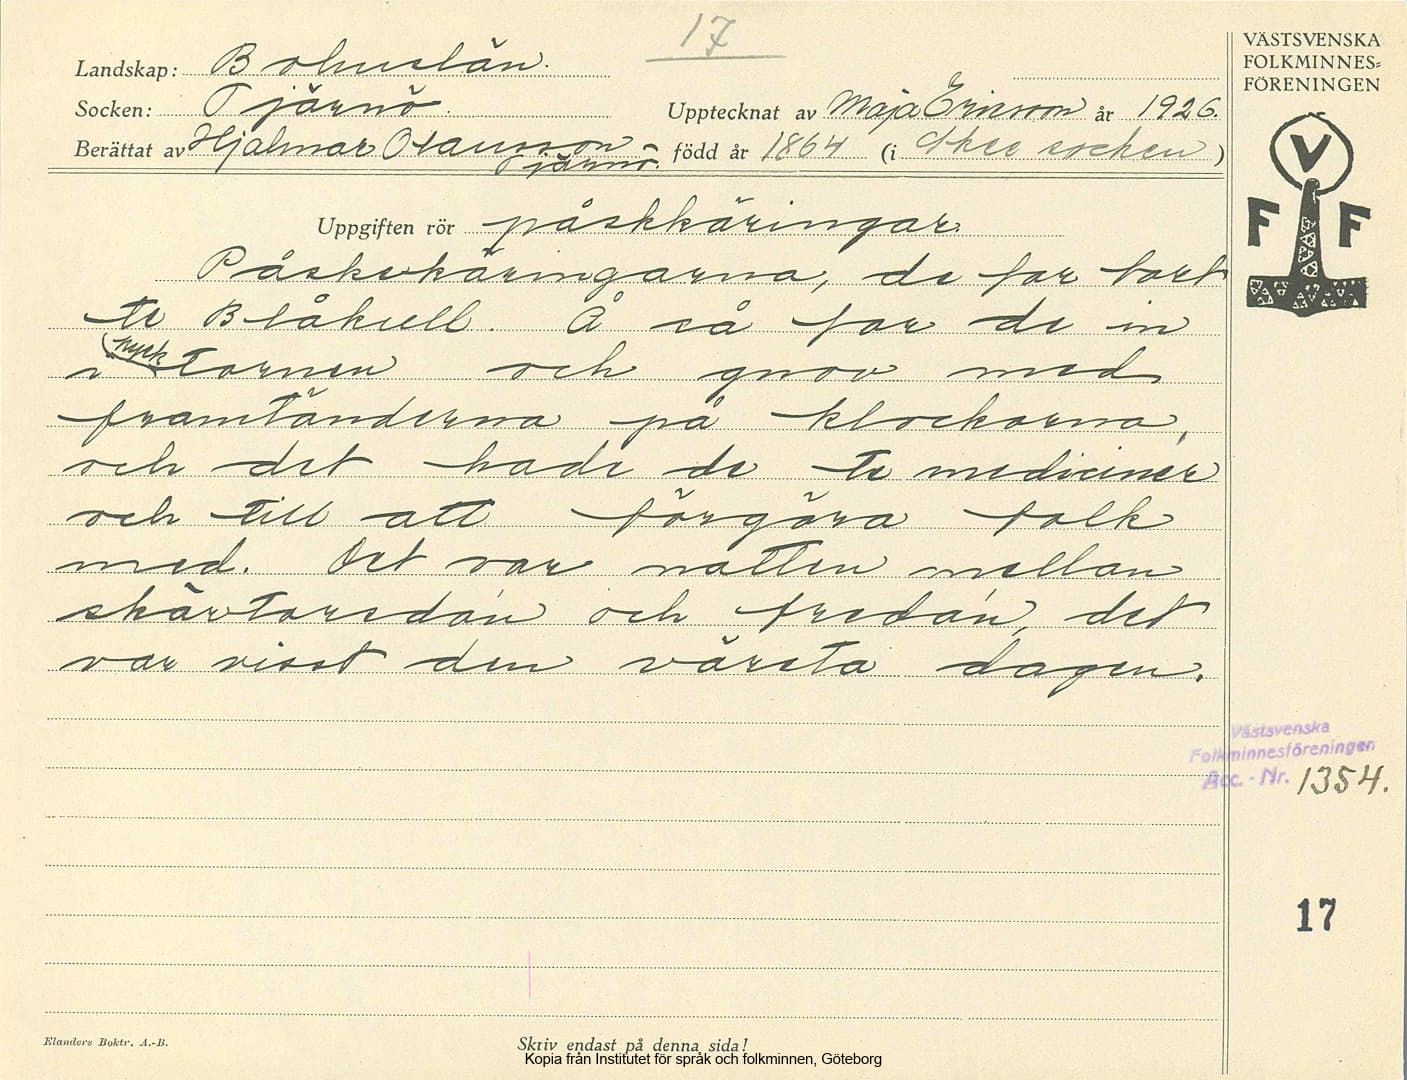 17
VÄSTSVENSKA
FOLKMINNES=
FÖRENINGEN
Landskap: Bohuslän.
Socken: Tjärnö.
Upptecknat av Maja Ericsson år 1926.
Berättat av Hjalmar Olausson
Tjärnö.
född år 1864 (i Skee socken)
V
F F
Uppgiften rör påskkäringar.
Påskekäringarna, de for bort
te Blåkull. Å så for de in
kyrk
i tornen och gnov med
framtänderna på klockorna,
och det hade de te mediciner
och till att förgöra folk
med. Det var natten mellan
skärtorsdan och fredan, det
var visst den värsta dagen.
Västsvenska
Folkminnesföreningen
Acc. - Nr. 1354.
17
Elanders Boktr. A.-B.
Skriv endast på denna sida!
Kopia från Institutet för språk och folkminnen, Göteborg